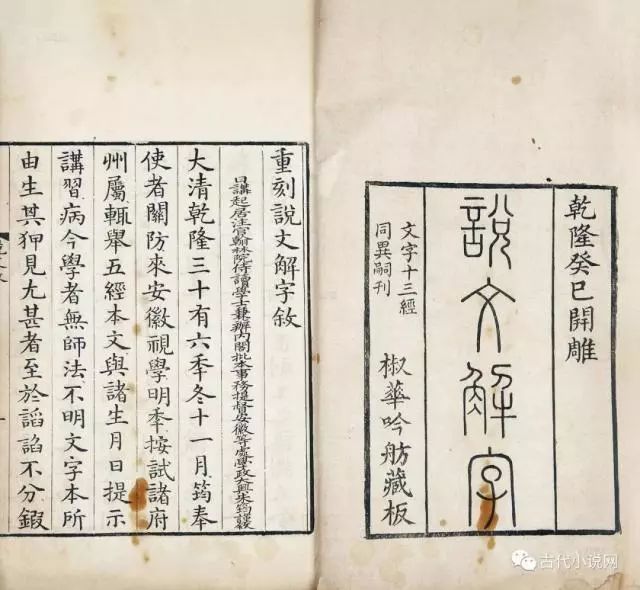 乾隆癸巳開雕
說文解字
文字十三經
同異嗣刊
椒華吟舫藏板
重刻說文解字敘
日講起居注官翰林院侍讀學士兼辦內閣批本事務提督安徽等處學政大興朱筠謹譔
大清乾隆三十有六秊冬十一月筠奉
使者關防來安徽視學明秊按試諸府
州屬輒舉五經本文與諸生月日提示
講習病今學者無師法不明文字本所
由生其狎見尤甚者至於謟諂不分鍜
古代小说网